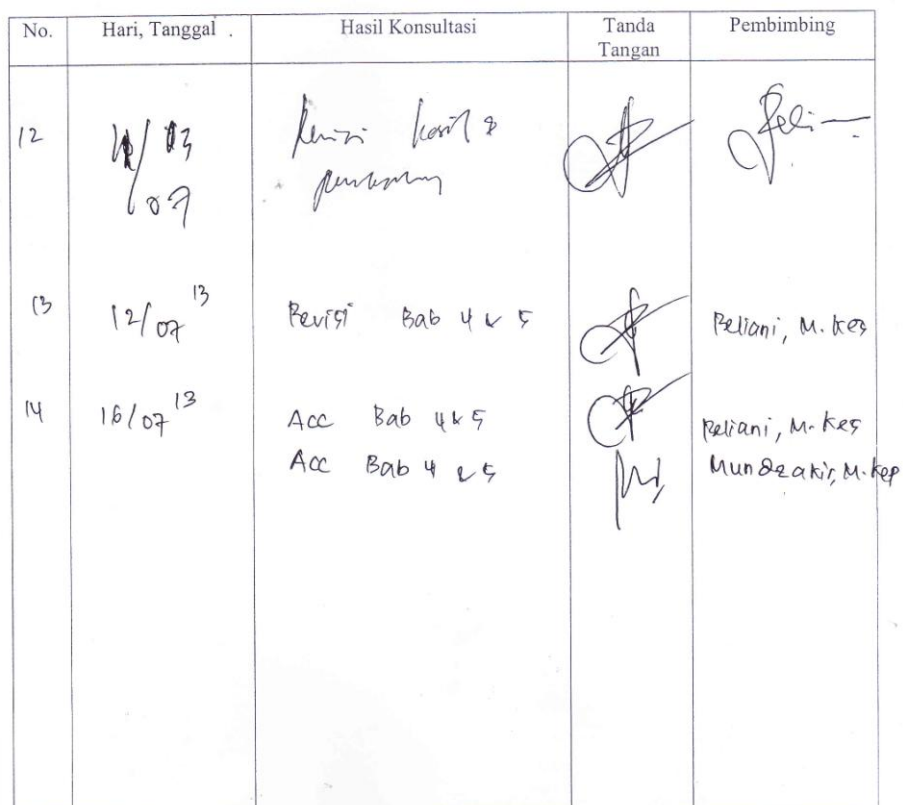 No. Hari, Tanggal . Hasil Konsultasi Tanda Tangan Pembimbing
12 13 07 Revisi hasil &
13 12/07 13 Revisi Bab 4 & 5 Reliani, M. Kes
14 16/07 13 Acc Bab 4 & 5 Reliani, M. Kes
Acc Bab 4 & 5 Mundzakir, M. Kep